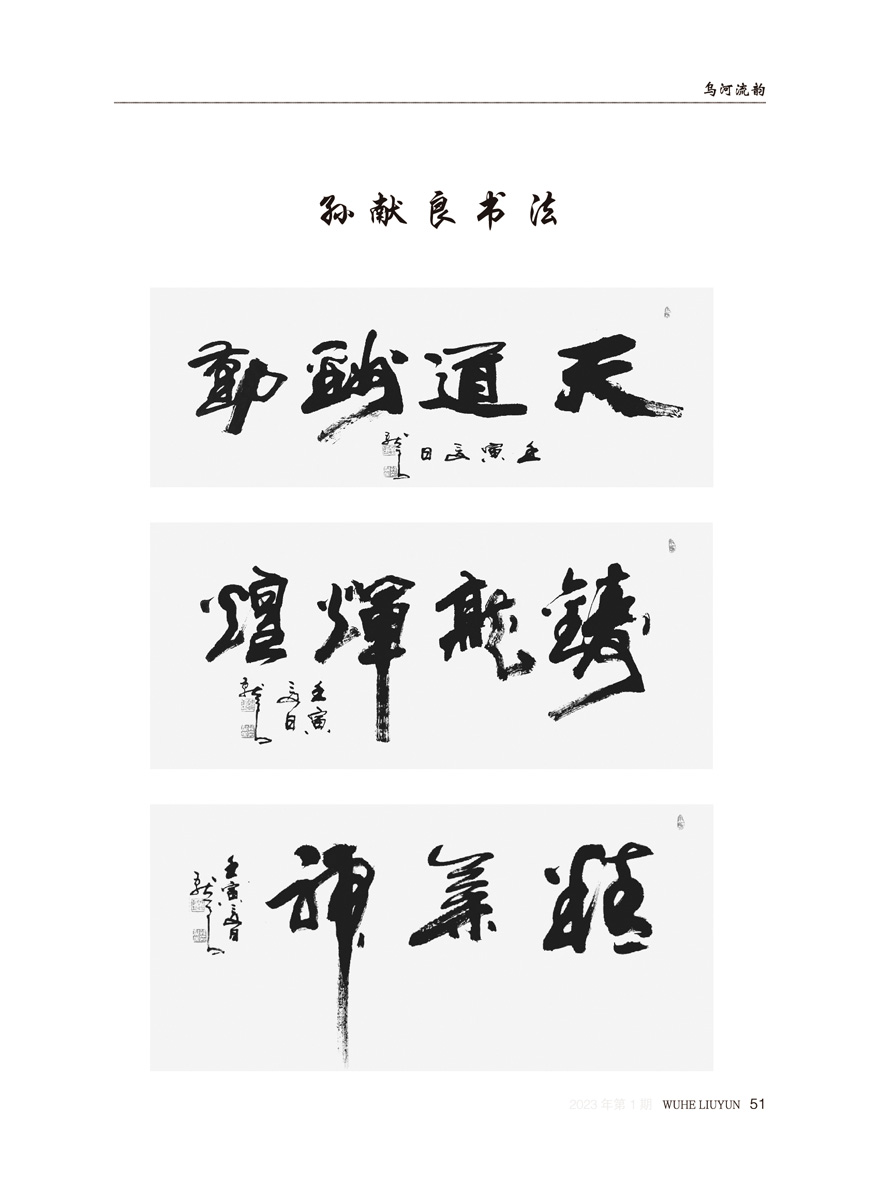 乌河流韵
孙献良书法
天道酬勤
壬寅夏日
铸龙辉煌
壬寅
夏日
精气神
壬寅夏日
2023 年第 1 期 WUHE LIUYUN 51